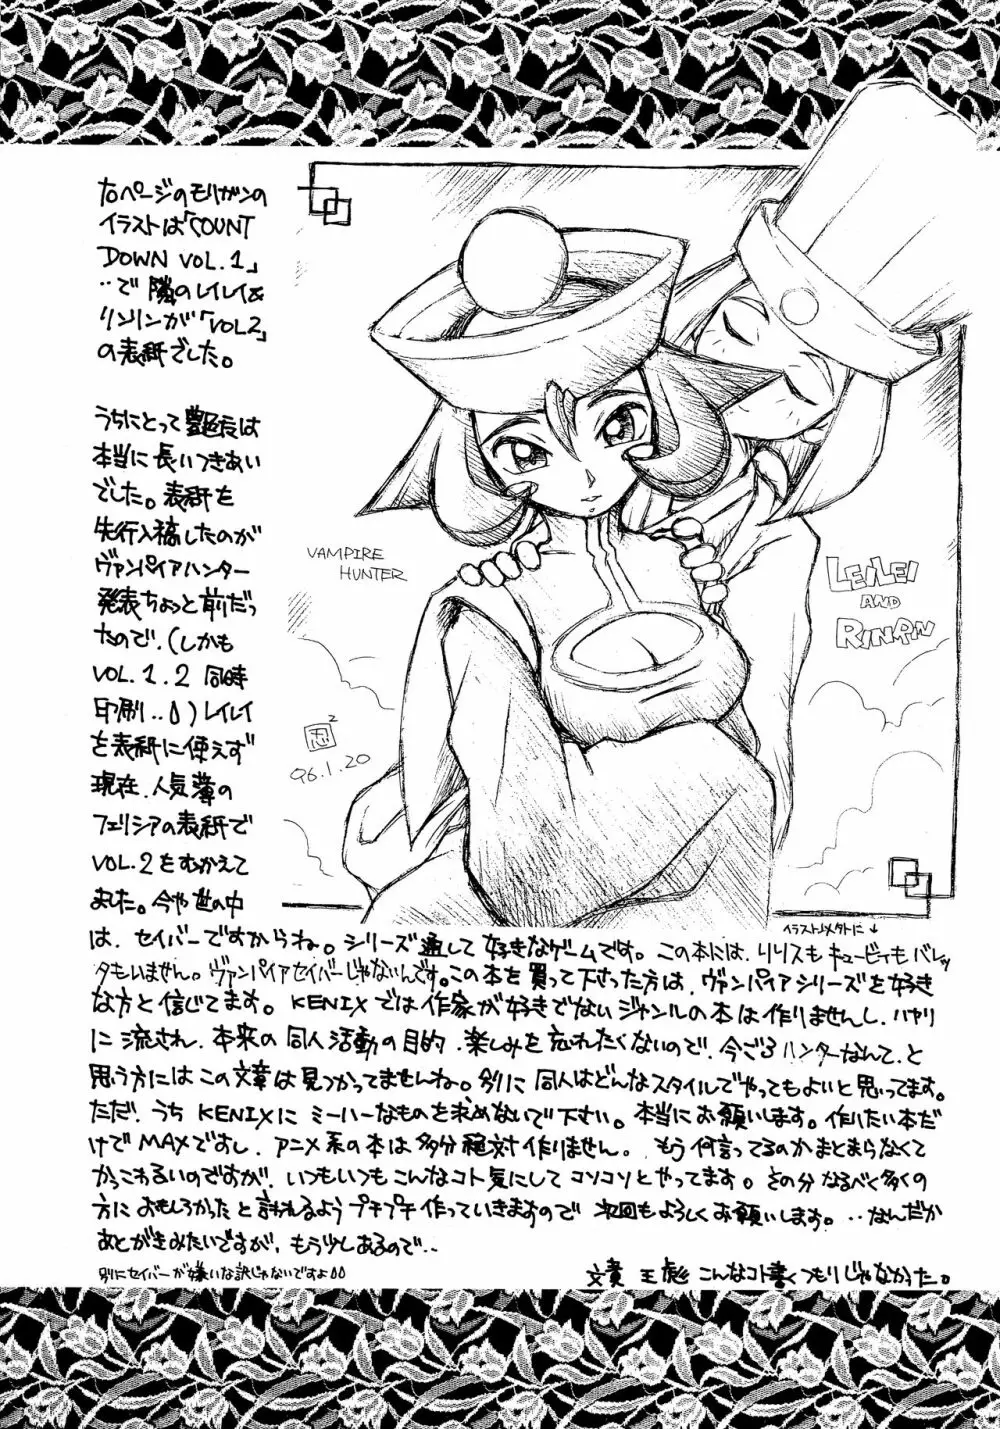 10ページのモリガンの
イラストは「COUNT
DOWN VOL.1」
‥で 隣のレイレイ&
リンリンが「VOL2」
の表紙でした。
うちにとって艶伝は
本当に長いつきあい
でした。表紙を
先行入稿したのが
ヴァンパイアハンター
発表ちょっと前だっ
たので、(しかも
VOL.1.2 同時
印刷‥) レイレイ
を表紙に使えず
現在、人気薄の
フェリシアの表紙で
VOL.2をむかえて
ました。今や世の中
は、セイバーですからね。シリーズ通して好きなゲームです。この本には、リリスもキュービィもバレッ
タもいません。ヴァンパイアセイバーじゃないんです。この本を買って下さった方は、ヴァンパイアシリーズを好き
な方と信じてます。KENIXでは作家が好きでないジャンルの本は作りませんし、ハヤリ
に流され、本来の同人活動の目的、楽しみを忘れたくないので、今ごろハンターなんて、と
思う方にはこの文章は見つかってませんね。別に同人はどんなスタイルでやってもよいと思ってます。
ただ、うちKENIXにミーハーなものを求めないで下さい。本当にお願いします。作りたい本だ
けでMAXですし、アニメ系の本は多分絶対作りません。もう何言ってるのかまとまらなくて
かっこわるいのですが、いつもいつもこんなコト気にしてコソコソとやってます。その分なるべく多くの
方におもしろかったと言われるようプチプチ作っていきますので次回もよろしくお願いします。‥なんだか
あとがきみたいですが、もう少しあるので‥
別にセイバーが嫌いな訳じゃないですよ
文責 王彪 こんなコト書くつもりじゃなかった。
VAMPIRE
HUNTER
LEILEI
AND
RINRIN
忍2
96.1.20
イラストノメクトに↓